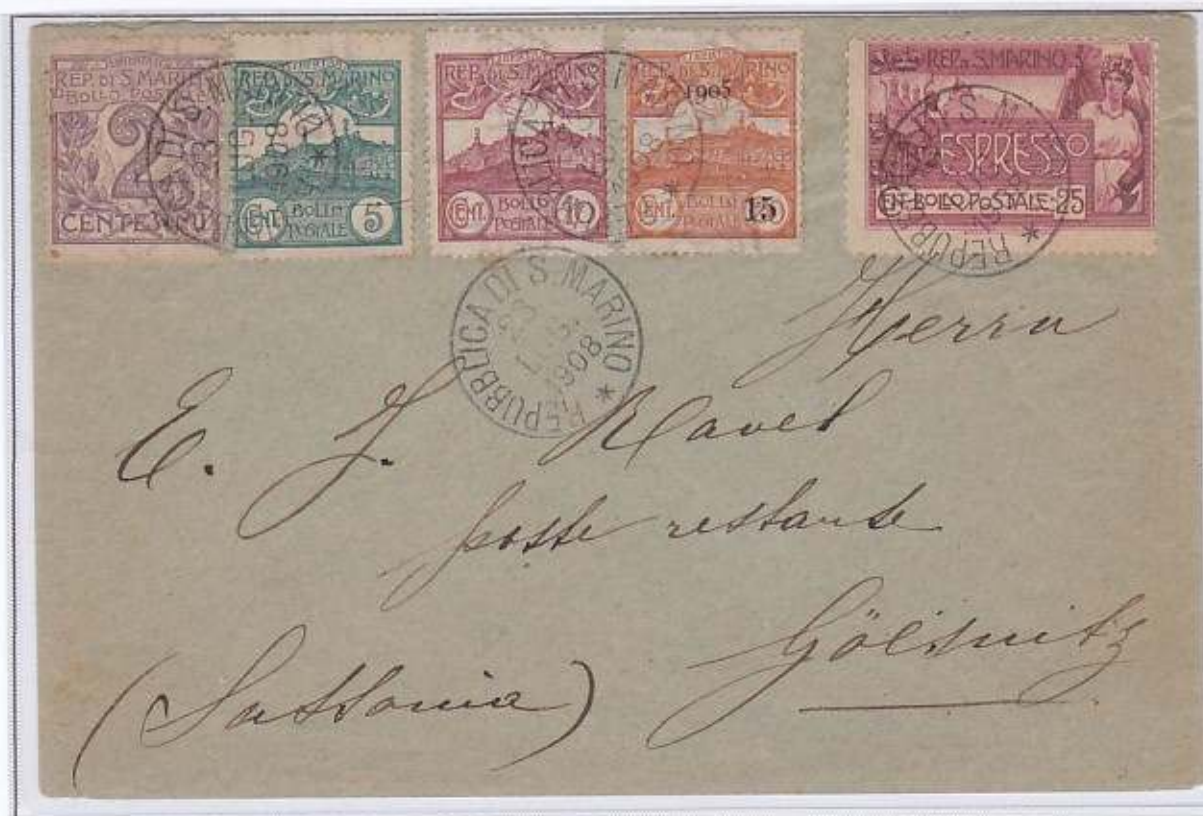 REP. DI S. MARINO
BOLLO POSTALE
2
CENTESIMI
REP. DI S. MARINO
CENT. BOLLO POSTALE 5
REP. DI S. MARINO
CENT. BOLLO POSTALE 10
REP. DI S. MARINO
1905
CENT. BOLLO POSTALE 15
REP. DI S. MARINO
ESPRESSO
CENT. BOLLO POSTALE 25
REPUBBLICA DI S. MARINO *
23
LUG
1908
Herrn
E. J. Navel
poste restante
Gölsnitz
(Sassonia)